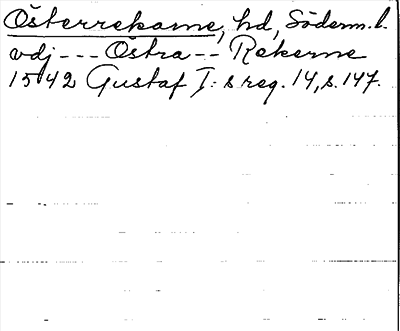 Österrekarne, hd, Söderm. l.
vdj --- Östra -- Rekerne
1542 Gustaf I: s reg. 14, s. 147.